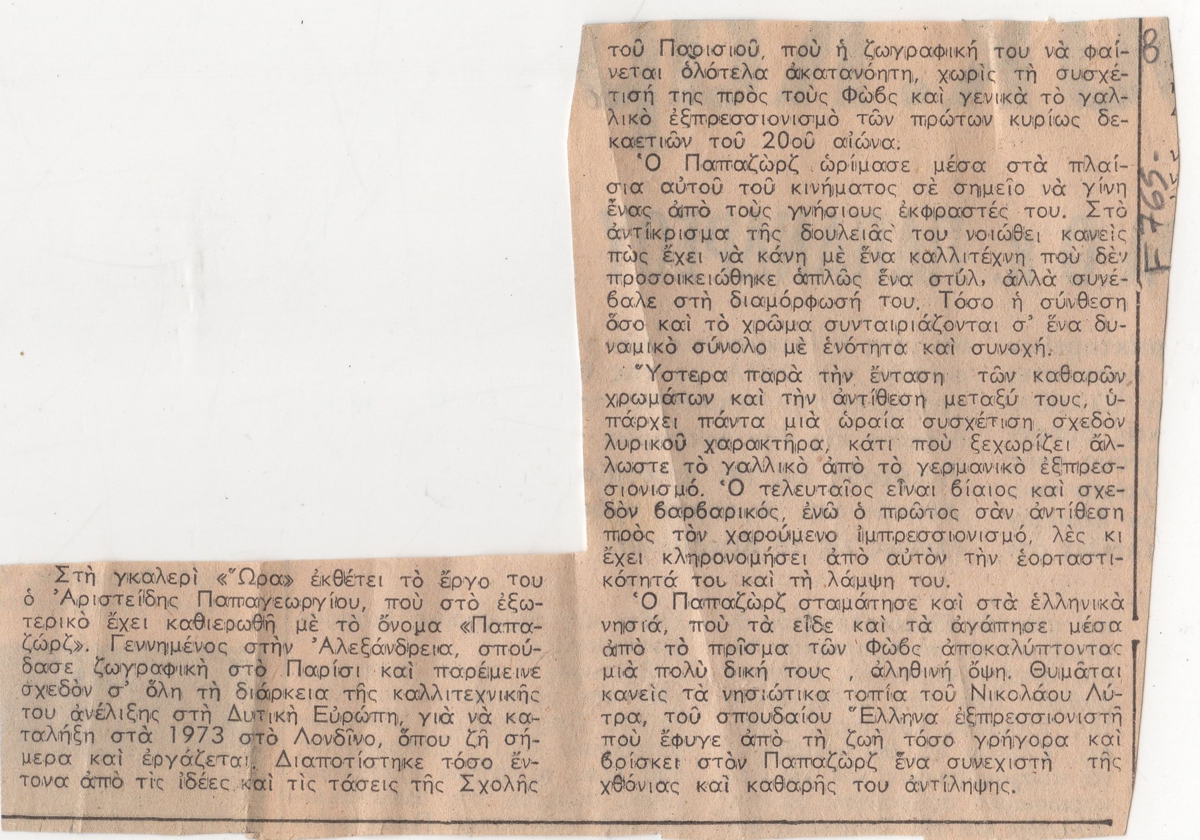 Στὴ γκαλερὶ «Ὥρα» ἐκθέτει τὸ ἔργο του
ὁ Ἀριστείδης Παπαγεωργίου, ποὺ στὸ ἐξω-
τερικὸ ἔχει καθιερωθῆ μὲ τὸ ὄνομα «Παπα-
ζώρζ». Γεννημένος στὴν Ἀλεξάνδρεια, σπού-
δασε ζωγραφικὴ στὸ Παρίσι καὶ παρέμεινε
σχεδὸν σ' ὅλη τὴ διάρκεια τῆς καλλιτεχνικῆς
του ἀνέλιξης στὴ Δυτικὴ Εὐρώπη, γιὰ νὰ κα-
ταλήξη στὰ 1973 στὸ Λονδῖνο, ὅπου ζῆ σή-
μερα καὶ ἐργάζεται. Διαποτίστηκε τόσο ἔν-
τονα ἀπὸ τὶς ἰδέες καὶ τὶς τάσεις τῆς Σχολῆς
τοῦ Παρισιοῦ, ποὺ ἡ ζωγραφική του νὰ φαί-
νεται ὁλότελα ἀκατανόητη, χωρὶς τὴ συσχέ-
τισή της πρὸς τοὺς Φὼβς καὶ γενικὰ τὸ γαλ-
λικὸ ἐξπρεσσιονισμὸ τῶν πρώτων κυρίως δε-
καετιῶν τοῦ 20οῦ αἰώνα.
Ὁ Παπαζὼρζ ὡρίμασε μέσα στὰ πλαί-
σια αὐτοῦ τοῦ κινήματος σὲ σημεῖο νὰ γίνη
ἕνας ἀπὸ τοὺς γνήσιους ἐκφραστές του. Στὸ
ἀντίκρισμα τῆς δουλειᾶς του νοιώθει κανεὶς
πὼς ἔχει νὰ κάνη μὲ ἕνα καλλιτέχνη ποὺ δὲν
προσοικειώθηκε ἁπλῶς ἕνα στύλ, ἀλλὰ συνέ-
βαλε στὴ διαμόρφωσή του. Τόσο ἡ σύνθεση
ὅσο καὶ τὸ χρῶμα συνταιριάζονται σ' ἕνα δυ-
ναμικὸ σύνολο μὲ ἑνότητα καὶ συνοχή.
Ὕστερα παρὰ τὴν ἔνταση τῶν καθαρῶν
χρωμάτων καὶ τὴν ἀντίθεση μεταξύ τους, ὑ-
πάρχει πάντα μιὰ ὡραία συσχέτιση σχεδὸν
λυρικοῦ χαρακτῆρα, κάτι ποὺ ξεχωρίζει ἄλ-
λωστε τὸ γαλλικὸ ἀπὸ τὸ γερμανικὸ ἐξπρεσ-
σιονισμό. Ὁ τελευταῖος εἶναι βίαιος καὶ σχε-
δὸν βαρβαρικός, ἐνῶ ὁ πρῶτος σὰν ἀντίθεση
πρὸς τὸν χαρούμενο ἰμπρεσσιονισμό, λὲς κι
ἔχει κληρονομήσει ἀπὸ αὐτὸν τὴν ἑορταστι-
κότητά του καὶ τὴ λάμψη του.
Ὁ Παπαζὼρζ σταμάτησε καὶ στὰ ἑλληνικὰ
νησιά, ποὺ τὰ εἶδε καὶ τὰ ἀγάπησε μέσα
ἀπὸ τὸ πρῖσμα τῶν Φὼβς ἀποκαλύπτοντας
μιὰ πολὺ δική τους , ἀληθινὴ ὄψη. Θυμᾶται
κανεὶς τὰ νησιώτικα τοπία τοῦ Νικολάου Λύ-
τρα, τοῦ σπουδαίου Ἕλληνα ἐξπρεσσιονιστῆ
ποὺ ἔφυγε ἀπὸ τὴ ζωὴ τόσο γρήγορα καὶ
βρίσκει στὸν Παπαζὼρζ ἕνα συνεχιστὴ τῆς
χθόνιας καὶ καθαρῆς του ἀντίληψης.
8
F 765.